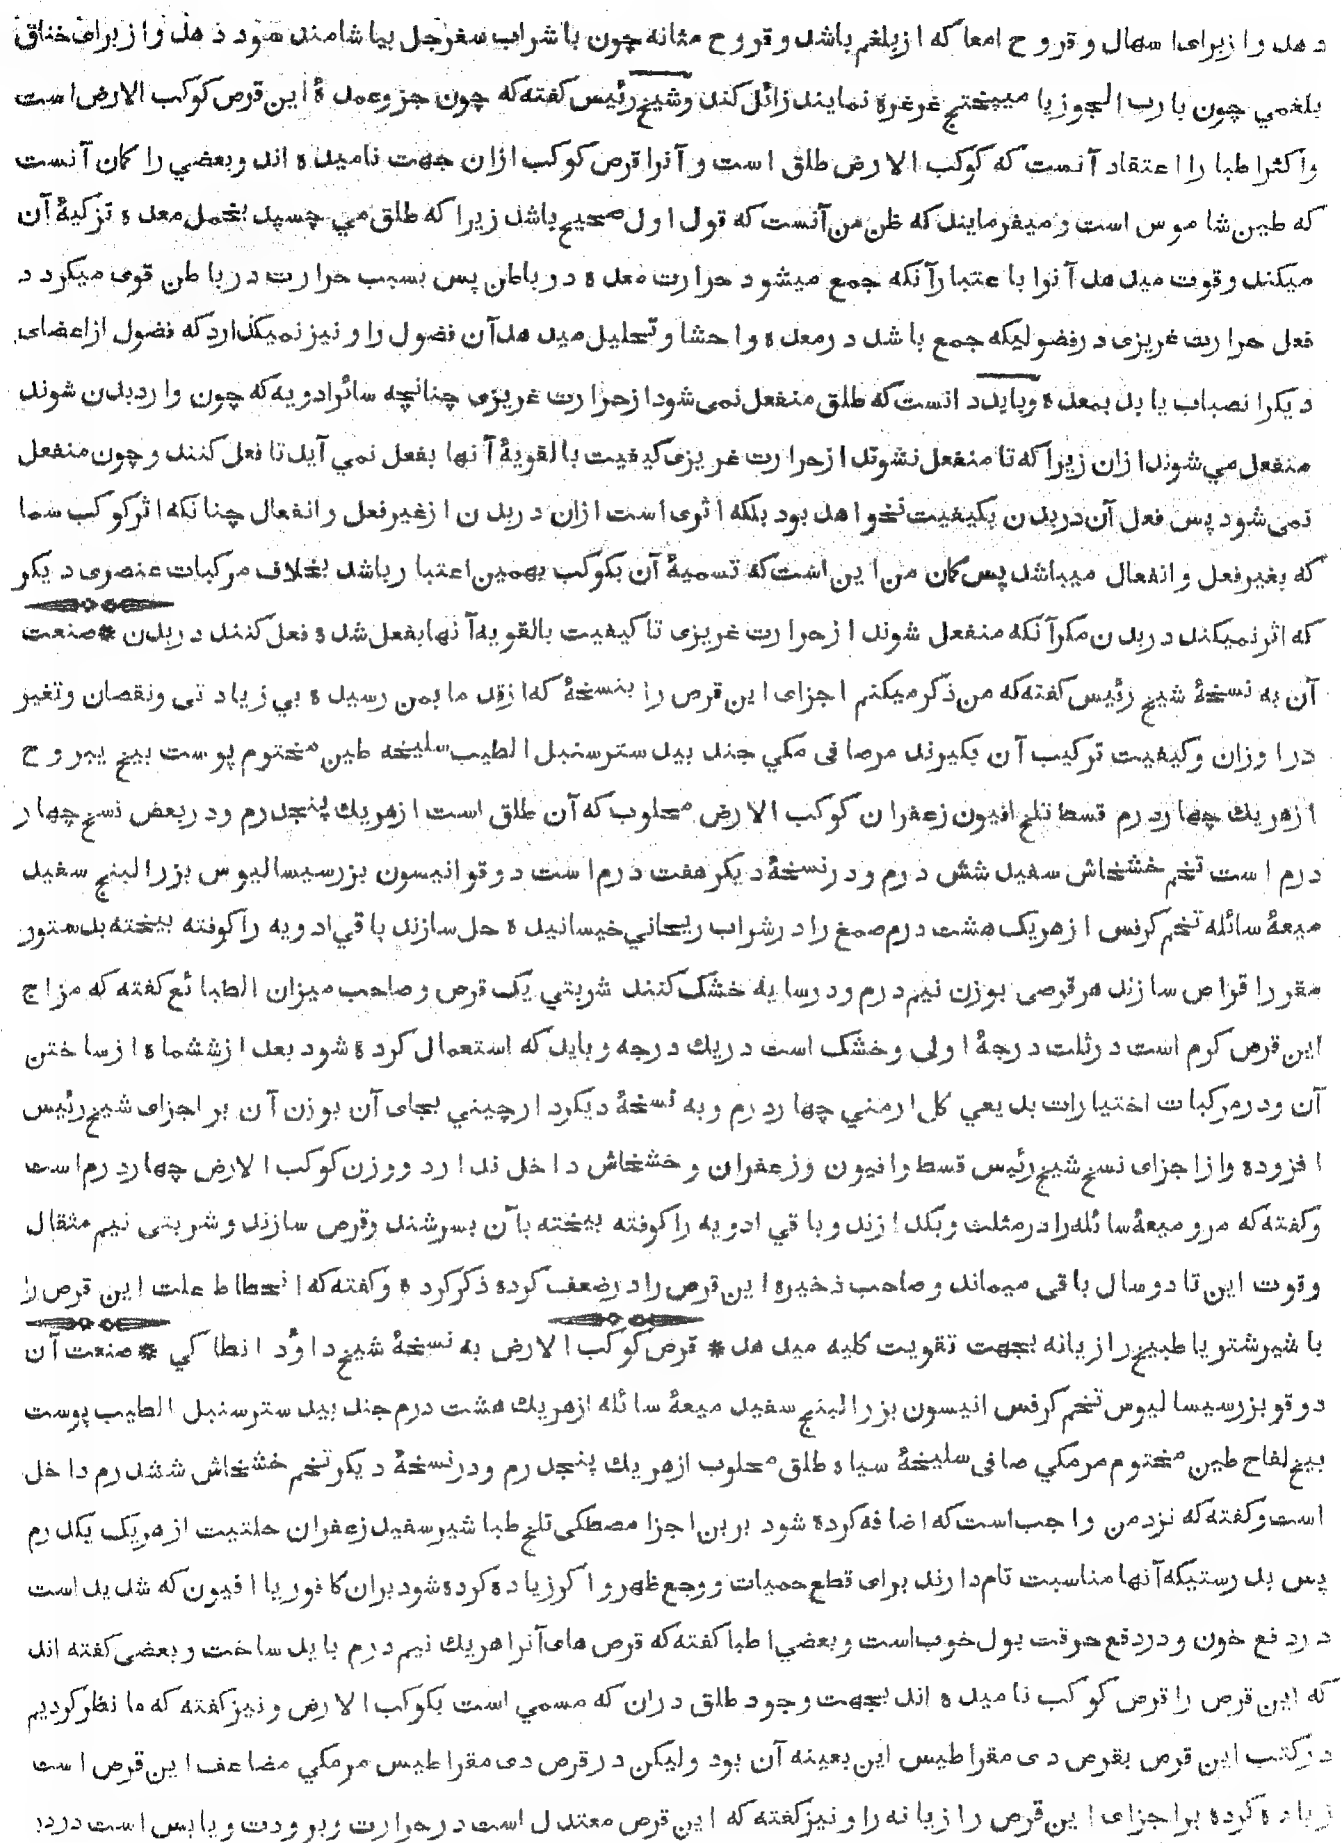 دهد و از برای اسهال و قروح امعا که از بلغم باشد و قروح مثانه چون با شراب سفرجل بیاشامند سود دهد و از برای خناق
بلغمي چون با رب الجوز یا میپختج غرغره نمایند زائل کند و شیخ رئیس گفته که چون جز و عمدهٔ این قرص کوکب الارض است
و اکثر اطبا را اعتقاد آنست که کوکب الارض طلق است و آنرا قرص کوکب ازان جهت نامیده اند و بعضي را گمان آنست
که طین شاموس است و میفرمایند که ظن من آنست که قول اول صحیح باشد زیرا که طلق مي چسپد بخمل معده و تزکیهٔ آن
میکند و قوت میدهد آنرا با عتبار آنکه جمع میشود حرارت معده در باطن پس بسبب حرارت در باطن قوی میگردد
فعل حرارت غریزی در فضولیکه جمع باشد در معده و احشا و تحلیل میدهد آن فضول را و نیز نمیگذارد که فضول از اعضای
دیگر انصباب یابد بمعده و باید دانست که طلق منفعل نمی شود از حرارت غریزی چنانچه سائر ادویه که چون وارد بدن شوند
منفعل مي شوند ازان زیرا که تا منفعل نشوند از حرارت غریزی کیفیت بالقویهٔ آنها بفعل نمي آید تا فعل کنند و چون منفعل
نمی شود پس فعل آن در بدن بکیفیت نخواهد بود بلکه اثری است ازان در بدن از غیر فعل و انفعال چنانکه اثر کوکب سما
که بغیر فعل و انفعال میباشد پس گمان من این است که تسمیهٔ آن بکوکب بهمین اعتبار باشد بخلاف مرکبات عنصری دیگر
که اثر نمیکند در بدن مگر آنکه منفعل شوند از حرارت غریزی تا کیفیت بالقویه آنها بفعل شده فعل کنند در بدن * صنعت
آن به نسخهٔ شیخ رئیس گفته که من ذکر میکنم اجزای این قرص را بنسخهٔ که از قدما بمن رسیده بي زیادتی و نقصان و تغیر
در اوزان و کیفیت ترکیب آن بگیرند مر صافی مکي جند بید ستر سنبل الطیب سلیخه طین مختوم پوست بیخ یبروح
از هریك چهار درم قسط تلخ افیون زعفران کوکب الارض محلوب که آن طلق است از هریك پنجدرم و در بعض نسخ چهار
درم است تخم خشخاش سفید شش درم و در نسخهٔ دیگر هفت درم است دوقو انیسون بزر سیسالیوس بزر البنج سفید
میعهٔ سائله تخم کرفس از هریک هشت درم صمغ را در شراب ریحاني خیسانیده حل سازند باقي ادویه را کوفته بیخته بدستور
مقرر اقراص سازند هر قرصی بوزن نیم درم و در سایه خشک کنند شربتي یک قرص و صاحب میزان الطبائع گفته که مزاج
این قرص گرم است در ثلث درجهٔ اولی و خشک است در یك درجه و باید که استعمال کرده شود بعد از ششماه از ساختن
آن و در مرکبات اختیارات بدیعي گل ارمني چهار درم و به نسخهٔ دیگر دارچیني بجای آن بوزن آن بر اجزای شیخ رئیس
افزوده و از اجزای نسخ شیخ رئیس قسط و افیون و زعفران و خشخاش داخل ندارد و وزن کوکب الارض چهار درم است
و گفته که مر و میعهٔ سائله را در مثلث و بگدازند و باقي ادویه را کوفته بیخته با آن بسرشند و قرص سازند و شربتی نیم مثقال
و قوت این تا دو سال باقی میماند و صاحب ذخیره این قرص را در ضعف گرده ذکر کرده و گفته که انحطاط علت این قرص را
با شیر شتر یا طبیخ رازیانه بجهت تقویت کلیه میدهد * قرص کوکب الارض به نسخهٔ شیخ داؤد انطاکي * صنعت آن
دوقو بزر سیسالیوس تخم کرفس انیسون بزر البنج سفید میعهٔ سائله از هریك هشت درم جند بید ستر سنبل الطیب پوست
بیخ لفاح طین مختوم مر مکي صافی سلیخهٔ سیاه طلق محلوب از هریك پنجدرم و در نسخهٔ دیگر تخم خشخاش ششدرم داخل
است و گفته که نزد من واجب است که اضافه کرده شود برین اجزا مصطکی تلخ طباشیر سفید زعفران حلتیت از هریک یکدرم
پس بدرستیکه آنها مناسبت تام دارند برای قطع حمیات و وجع ظهر و اگر زیاده کرده شود بران کافور یا افیون که شدید است
در دفع خون و در دفع حرقت بول خوب است و بعضي اطبا گفته که قرص های آنرا هریك نیم درم باید ساخت و بعضی گفته اند
که این قرص را قرص کوکب نامیده اند بجهت وجود طلق دران که مسمي است بکوکب الارض و نیز گفته که ما نظر کردیم
در کتب این قرص بقرص دی مقراطیس این بعینه آن بود ولیکن در قرص دی مقراطیس مر مکي مضاعف این قرص است
زیاده کرده بر اجزای این قرص رازیانه را و نیز گفته که این قرص معتدل است در حرارت و برودت و یابس است در